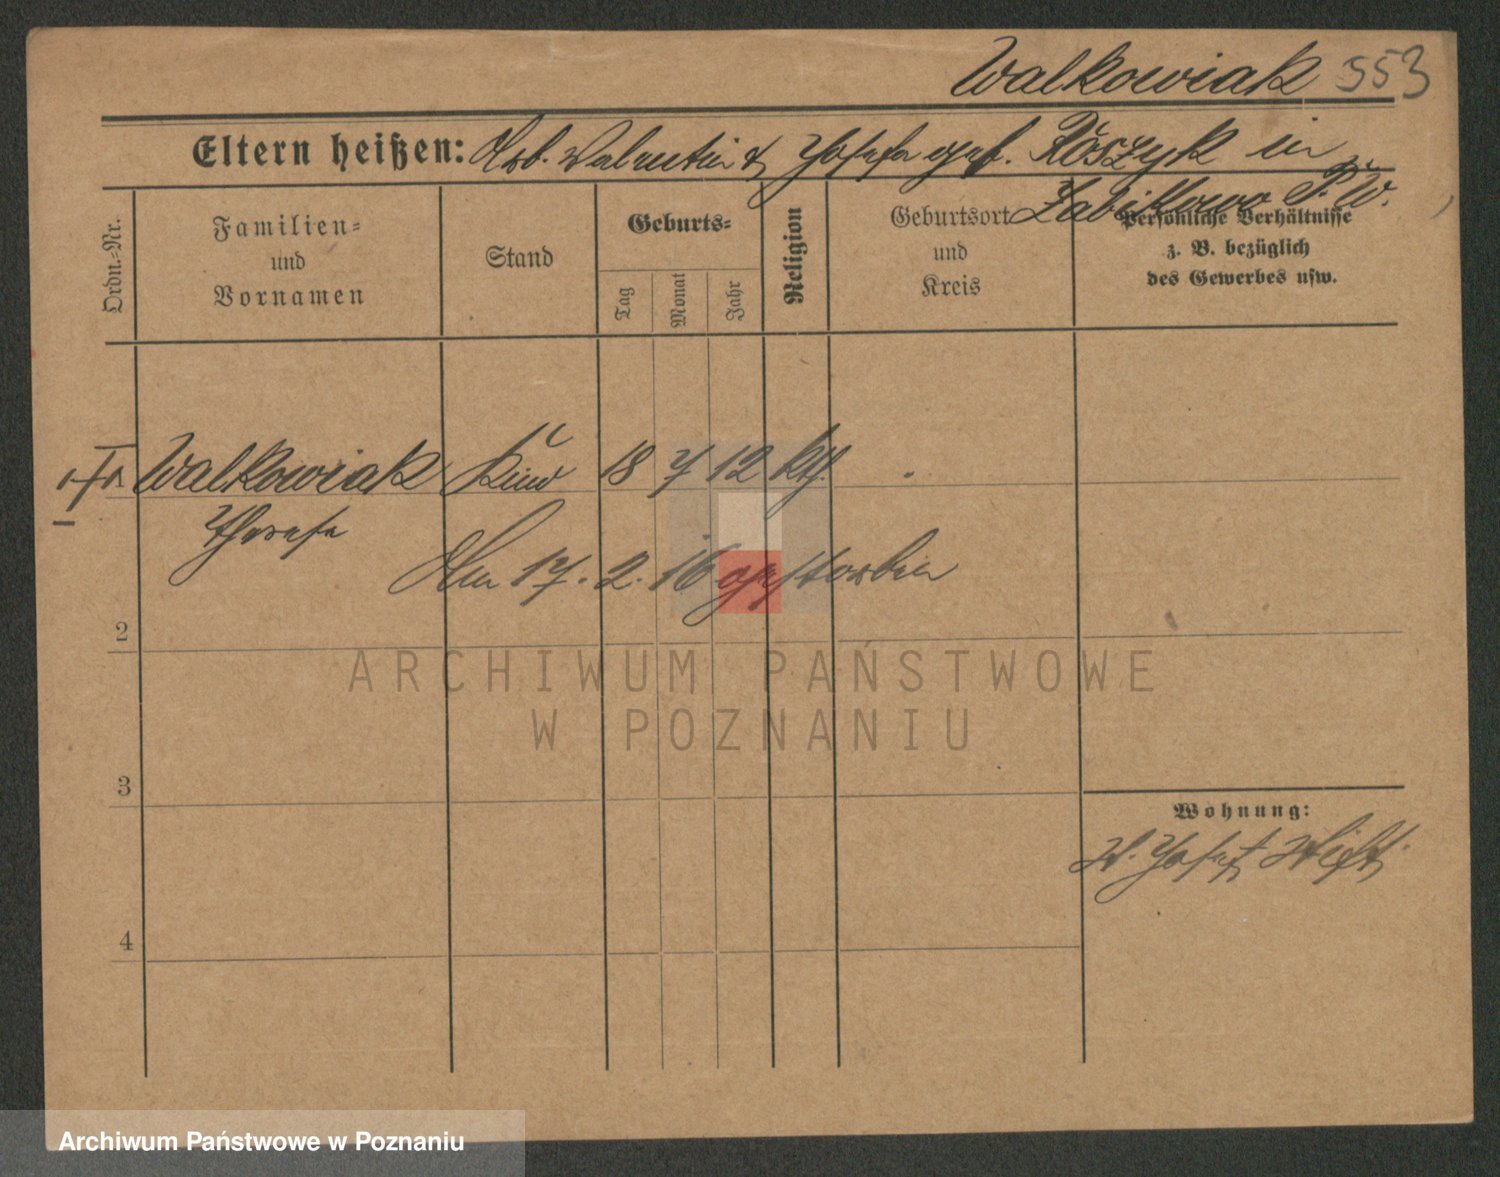 Walkowiak 553
Eltern heißen: Arb. Valentin & Josefa geb. Rószyk in
Żabikowo P. W.
Ordn.-Nr.
Familien-
und
Vornamen
Stand
Geburts-
Tag
Monat
Jahr
Religion
Geburtsort
und
Kreis
Persönliche Verhältnisse
z. B. bezüglich
des Gewerbes usw.
Walkowiak Kind 18 7 12 kth.
Theresa
Am 17. 2. 16 gestorben
2
3
4
Wohnung:
ARCHIWUM PAŃSTWOWE
W POZNANIU
Archiwum Państwowe w Poznaniu